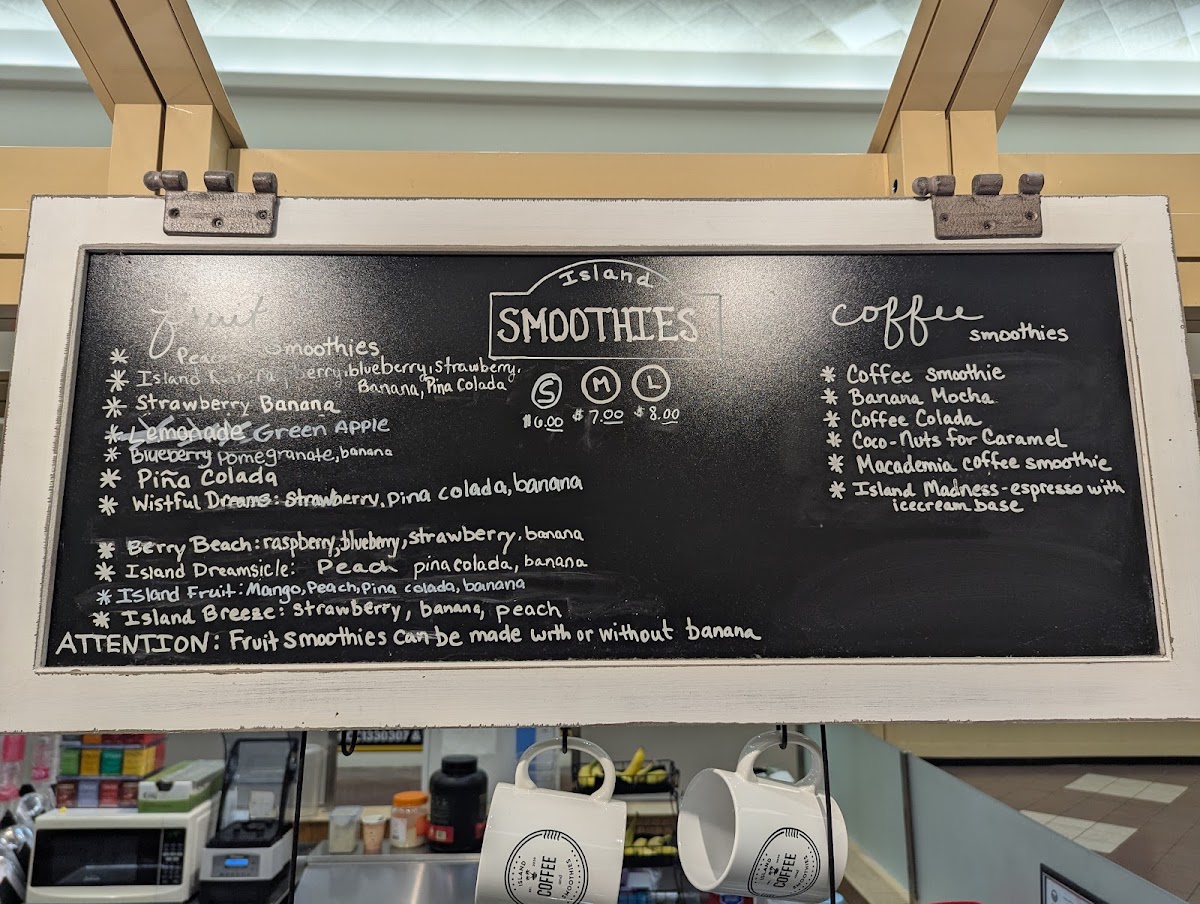 Island
SMOOTHIES
S M L
$6.00 $7.00 $8.00
fruit
smoothies
* Island
blueberry, strawberry,
Banana, Pina Colada
* Strawberry Banana
* Lemonade Green Apple
* Blueberry pomegranate, banana
* Piña Colada
* Wistful Dreams: strawberry, pina colada, banana
* Berry Beach: raspberry, blueberry, strawberry, banana
* Island Dreamsicle: Peach pina colada, banana
* Island Fruit: Mango, Peach, Pina colada, banana
* Island Breeze: strawberry, banana, peach
ATTENTION: Fruit smoothies can be made with or without banana
coffee
smoothies
* Coffee smoothie
* Banana Mocha
* Coffee Colada
* Coco-Nuts for Caramel
* Macademia coffee smoothie
* Island Madness-espresso with
icecream base
ISLAND
COFFEE
and
SMOOTHIES
ISLAND
COFFEE
and
SMOOTHIES